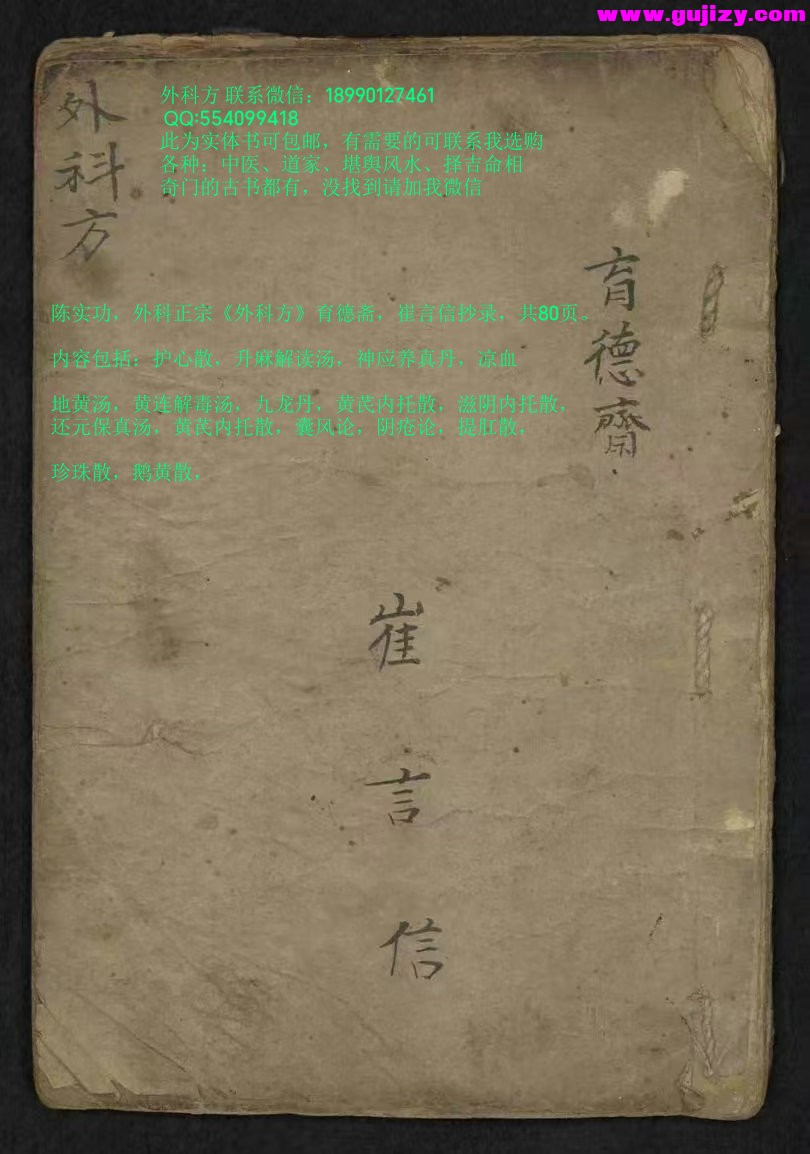 www.gujizy.com
外科方
外科方 联系微信：18990127461
QQ:554099418
此为实体书可包邮，有需要的可联系我选购
各种：中医、道家、堪舆风水、择吉命相
奇门的古书都有，没找到请加我微信
育德齋
陈实功，外科正宗《外科方》育德斋，崔言信抄录，共80页。
内容包括：护心散，升麻解读汤，神应养真丹，凉血
地黄汤，黄连解毒汤，九龙丹，黄芪内托散，滋阴内托散，
还元保真汤，黄芪内托散，囊风论，阴疮论，提肛散，
珍珠散，鹅黄散．
崔言信